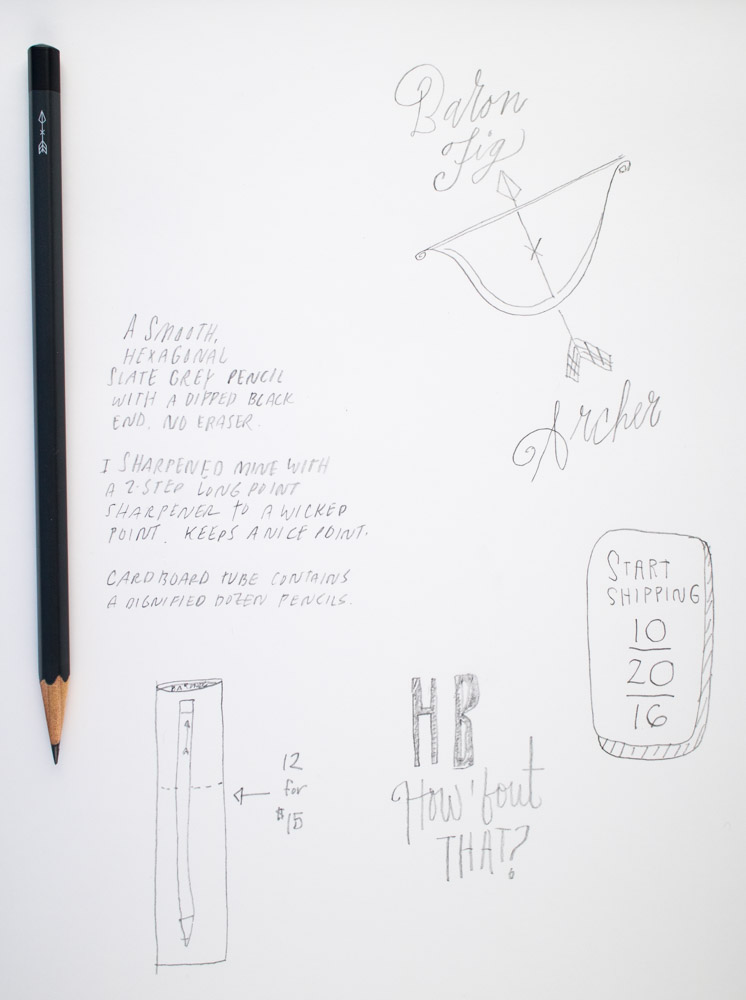 Baron
Fig
Archer
A SMOOTH,
HEXAGONAL
SLATE GREY PENCIL
WITH A DIPPED BLACK
END. NO ERASER.
I SHARPENED MINE WITH
A 2-STEP LONG POINT
SHARPENER to A WICKED
POINT. KEEPS A NICE POINT.
CARDBOARD tUBE CONTAINS
A DIGNIFIED DOZEN PENCILS.
START
SHIPPING
10
20
16
12
for
$15
HB
How 'bout
THAT?